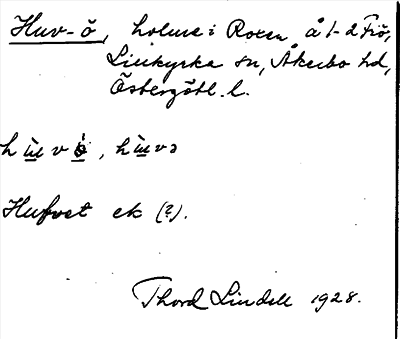 Huv-ö, holme i Roxen å 1-2 Frö,
Linkyrka sn, Åkerbo hd,
Östergötl. l.
hùvö̀, hùvə
Hufvet ek (?).
Thord Lindell 1928.